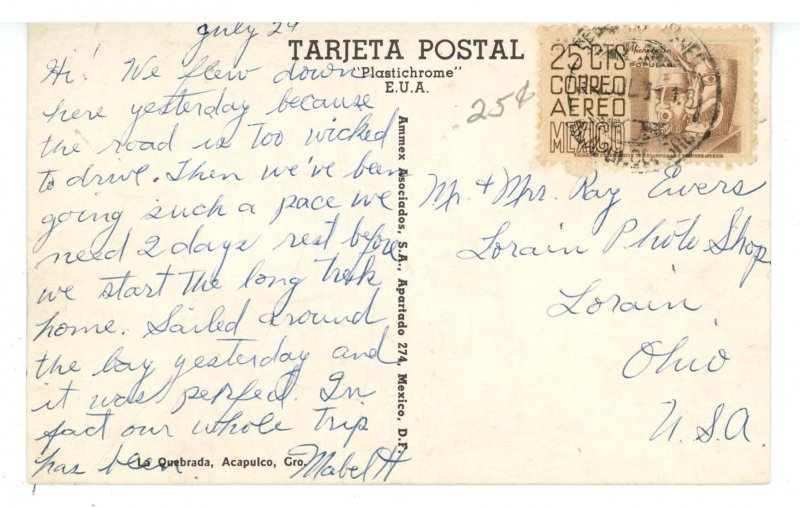 July 24
Hi! We flew down
here yesterday because
the road is too wicked
to drive. Then we've been
going such a pace we
need 2 days rest before
we start the long trek
home. Sailed around
the bay yesterday and
it was perfect. In
fact our whole trip
has been.
Mabel H
La Quebrada, Acapulco, Gro.
TARJETA POSTAL
"Plastichrome"
E.U.A.
Ammex Asociados, S.A., Apartado 274, Mexico, D.F.
25¢
25 CTS
CORREO
AEREO
MEXICO
Michoacan
POPULAR
Mr. + Mrs. Ray Ewers
Lorain Photo Shop
Lorain
Ohio
U.S.A.